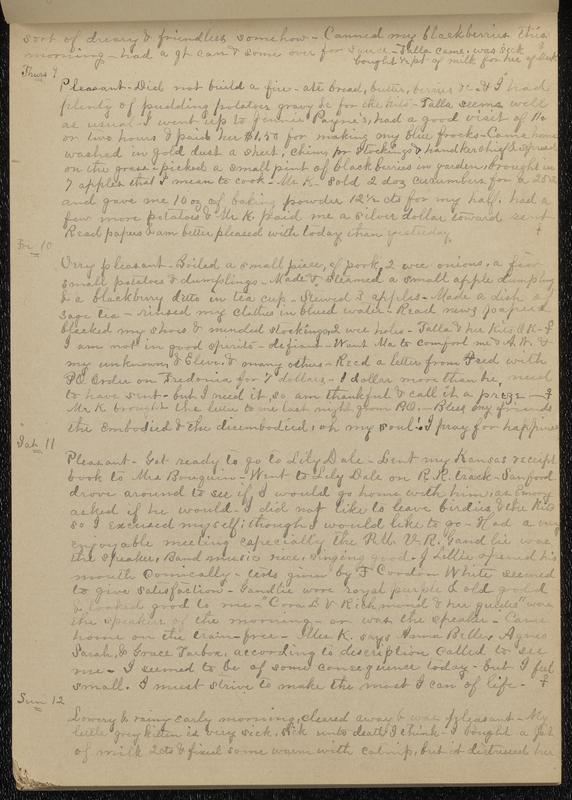 sort of dreary & friendless somehow - Canned my blackberries this
morning - had a qt can & some over for sauce - Talla came. was sick
bought ½ pt. of milk for her of Clark
Thurs 9
Pleasant - Did not build a fire - ate bread, butter, berries &c - & I had
plenty of pudding potatoes gravy &c for the kits - Talla seems well
as usual. I went up to Jennie Payne's, had a good visit of 1½
or two hours & paid her $1,50 for making my blue frocks - Came home
washed in gold dust a sheet, chim, pr Stockings & handkerchief & spread
on the grass - picked a small pint of blackberries in garden, brought in
7 apples that I mean to cook - Mr K - sold 2 doz cucumbers for a 25 cts
and gave me 10 oz of baking powder 12½ cts for my half. had a
few more potatoes & Mr K paid me a silver dollar toward rent
Read papers & am better pleased with today than yesterday.
Fri 10
Very pleasant - Boiled a small piece of pork, 2 wee onions, a few
small potatoes & dumplings - Made & steamed a small apple dumpling
& a blackberry ditto in tea cup - Stewed 3 apples - Made a dish of
sage tea - rinsed my clothes in blued water - Read news papers
blacked my shoes & mended stockings, 2 wee holes - Talla & her kits O.K -
I am not in good spirits - defiant - Want Ma to comfort me & A.W. &
my unknown, & Eleve. & many others - Recd a letter from Fred with
P.O. Order on Fredonia for 7 dollars - 1 dollar more than he, need
to have sent - but I need it, so am thankful & call it a prize -
Mr K brought the letter to me last night from P.O. - Bless my friends
the embodied & the disembodied, oh my soul! I pray for happiness
Sat 11
Pleasant - Got ready to go to Lily Dale - Lent my Kansas receipt
book to Mrs Bouquin - Went to Lily Dale on R.R. track - Sanford
drove around to see if I would go home with him, as Emory
asked if he would. I did not like to leave birdies & the kits
so I excused myself, though I would like to go - Had a very
enjoyable meeting especially the P.M. V. R. Gandhi was
the speaker, Band music nice, singing good. J Lillie opened his
mouth comically - tests given by F Cordon White seemed
to give satisfaction - Gandhi wore royal purple & old gold
& looked good to me - "Cora L V Richmond & her guides" were
the speaker of the morning - or was the speaker - Came
home on the train - free - Mrs K. says Anna Belle, Agnes
Sarah, & Grace Tarbox, according to description called to see
me - I seemed to be of some consequence today - but I feel
small. I must strive to make the most I can of life -
Sun 12
Lowery & rainy early morning, cleared away & was pleasant - My
little grey kitten is very sick, sick unto death I think - I bought a pt
of milk 2 cts & fixed some warm with catnip, but it distressed her